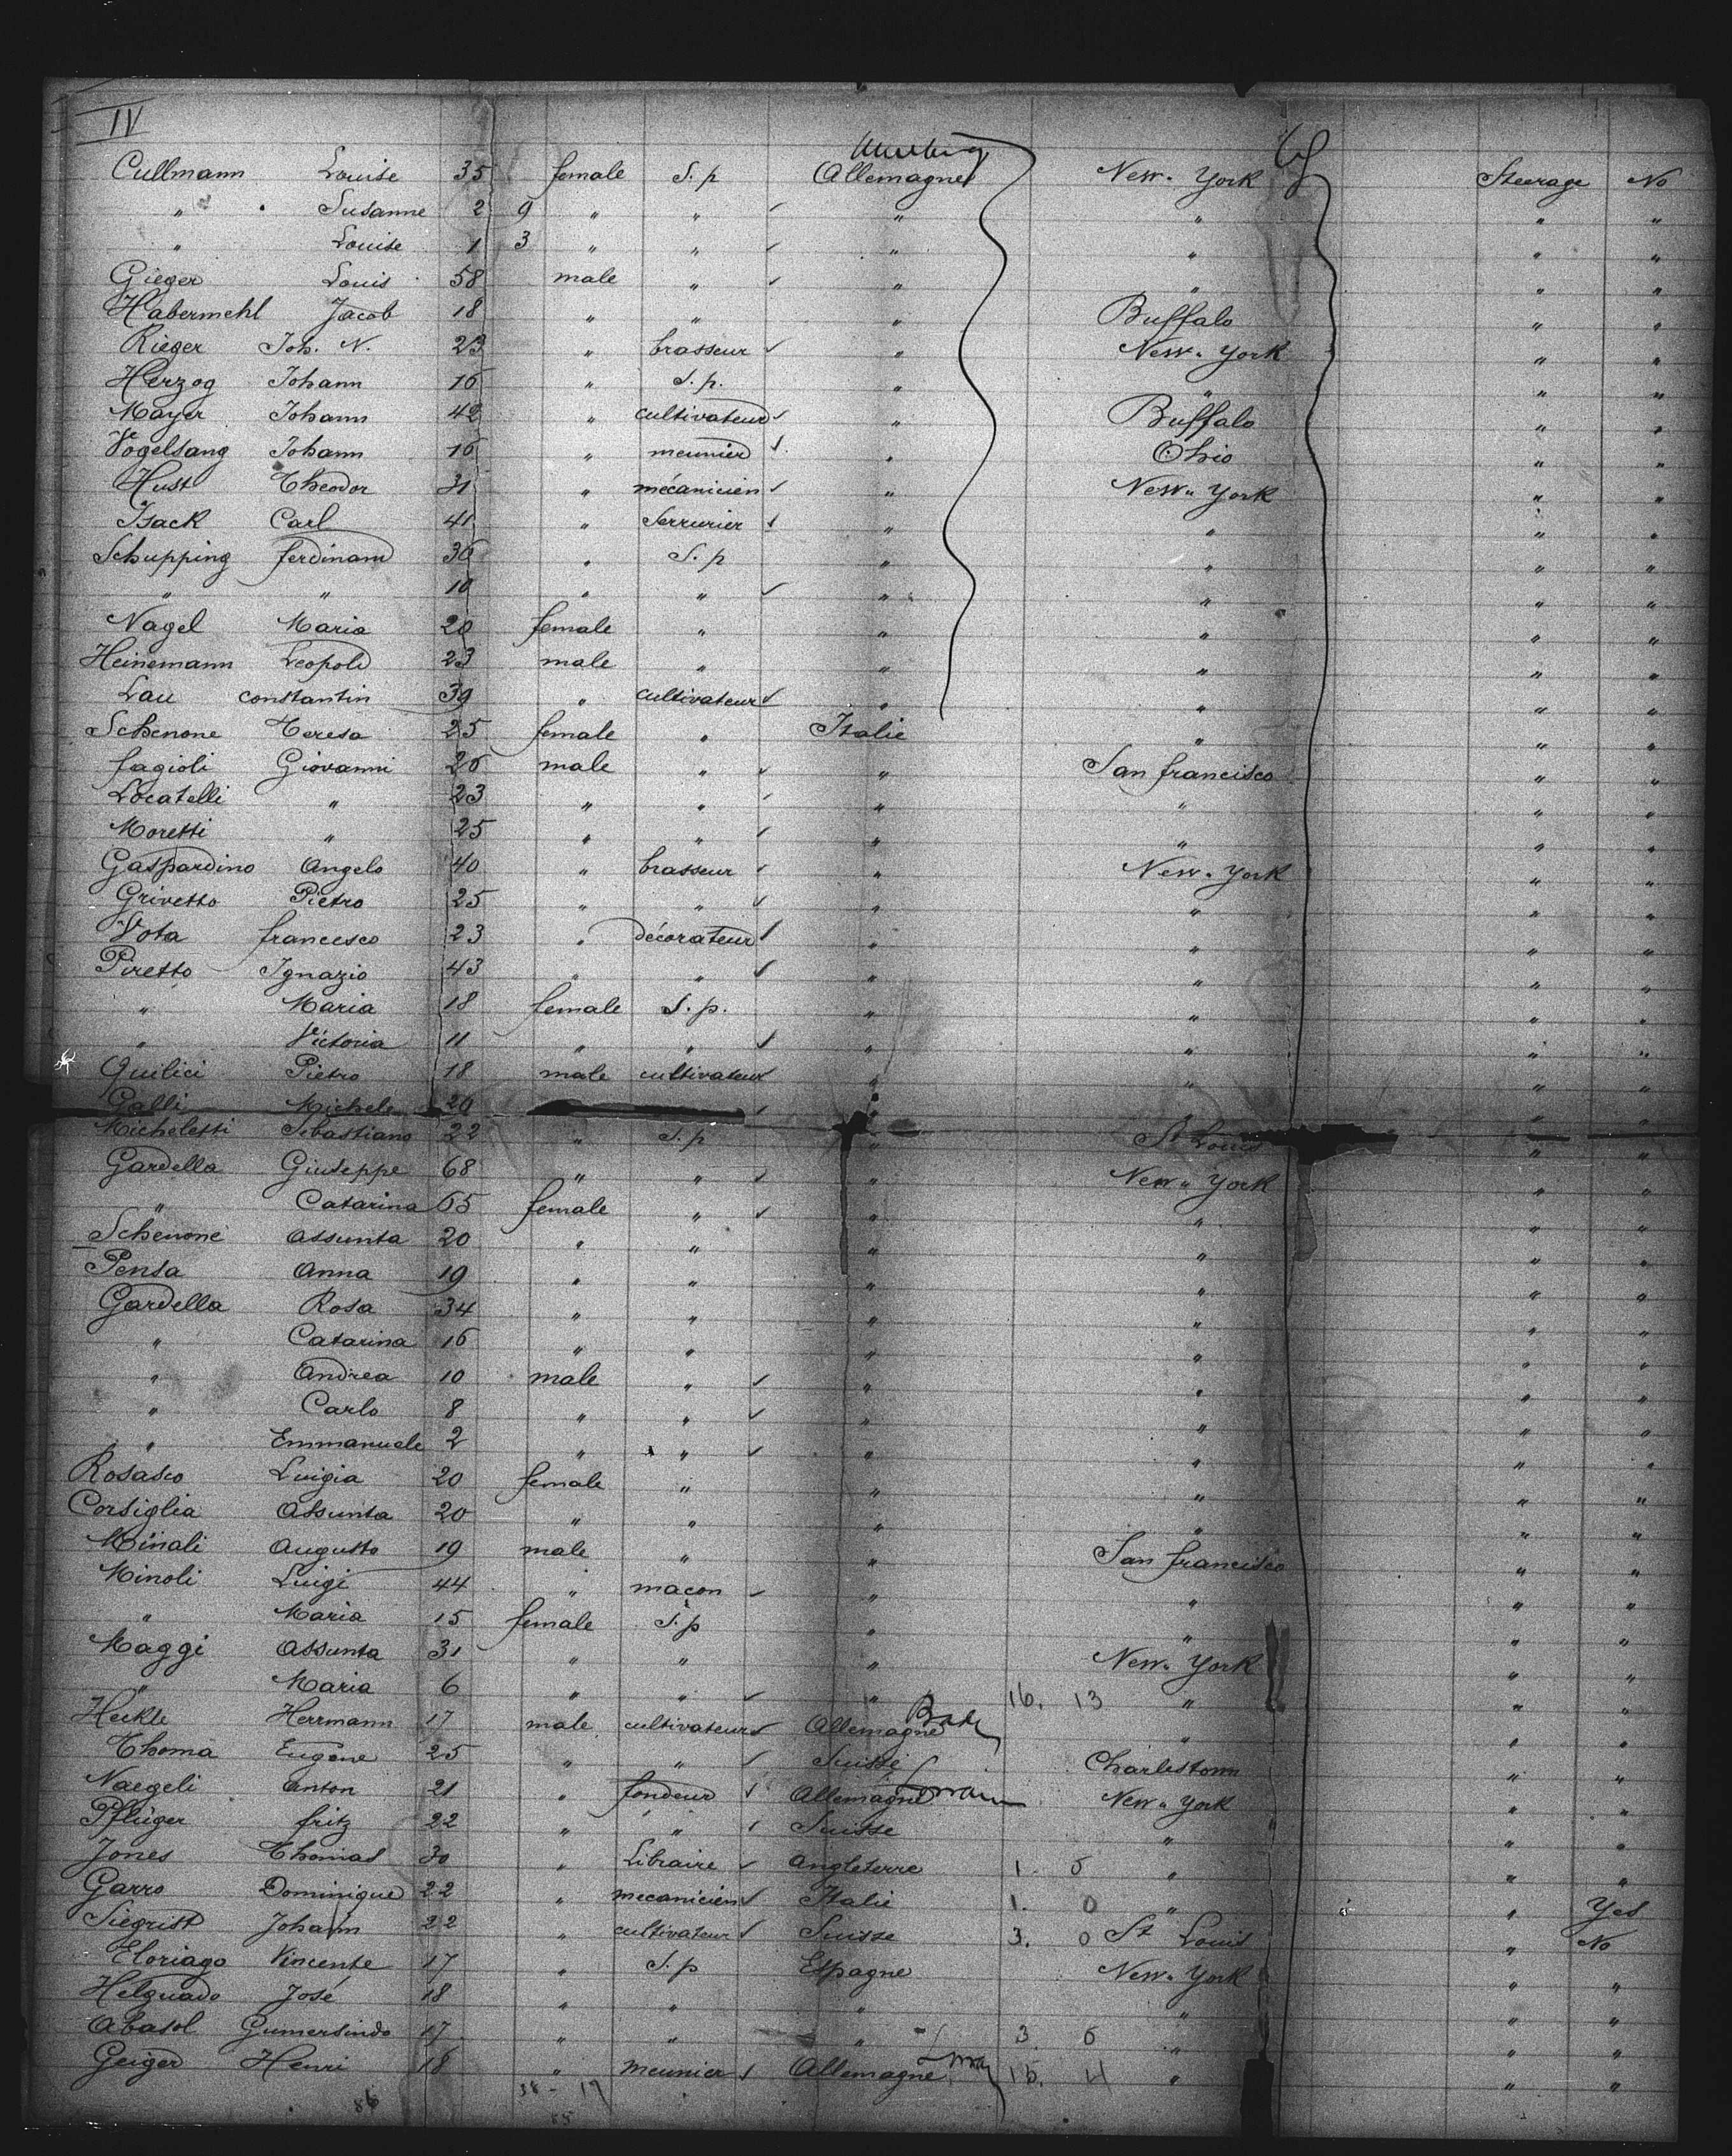 IV
Cullmann Louise 35 female S. p Allemagne New-York Steerage No
" Susanne 2 9 " " " " " "
" Louise 1 3 " " " " " "
Gieger Louis 58 male " " " " "
Habermehl Jacob 18 " " " Buffalo " "
Rieger Joh. N. 23 " brasseur " New-York " "
Herzog Johann 16 " S. p. " " " "
Mayer Johann 42 " cultivateur " Buffalo " "
Vogelsang Johann 16 " meunier " Ohio " "
Hust Theodor 31 " mécanicien " New-York " "
Isack Carl 41 " Serrurier " " " "
Schupping ferdinand 36 " S. p " " " "
" " 10 " " " " " "
Nagel Maria 20 female " " " " "
Heinemann Leopold 23 male " " " " "
Lau constantin 39 " cultivateur " " " "
Schenone Teresa 25 female " Italie " " "
fagioli Giovanni 26 male " " San francisco " "
Locatelli " 23 " " " " " "
Moretti " 25 " " " " " "
Gaspardino Angelo 40 " brasseur " New-York " "
Grivetto Pietro 25 " " " " " "
Vota francesco 23 " décorateur " " " "
Piretto Ignazio 43 " " " " " "
" Maria 18 female S. p. " " " "
" Victoria 11 " " " " " "
Quilici Pietro 18 male cultivateur " " " "
Galli Michele 26 " " " "
Micheletti Sebastiano 22 " S. p " St Louis " "
Gardella Giuseppe 68 " " " New-York " "
" Catarina 65 female " " " " "
Schenone Assunta 20 " " " " " "
Pensa Anna 19 " " " " " "
Gardella Rosa 34 " " " " " "
" Catarina 16 " " " " " "
" Andrea 10 male " " " " "
" Carlo 8 " " " " " "
" Emmanuele 2 " " " " " "
Rosasco Luigia 20 female " " " " "
Corsiglia Assunta 20 " " " " " "
Minali Augusto 19 male " " San francisco " "
Minoli Luigi 44 " maçon " " " "
" Maria 15 female S. p " " " "
Maggi Assunta 31 " " " New-York " "
" Maria 6 " " " 16. 13 " " "
Heckle Herrmann 17 male cultivateur Allemagne " " "
Thoma Eugene 25 " " Suisse Charlestown " "
Naegeli Anton 21 " fondeur Allemagne New-York " "
Pflüger fritz 22 " " Suisse " " "
Jones Thomas 30 " Libraire Angleterre 1. 0 " " "
Garro Dominique 22 " mecanicien Italie 1. 0 " " Yes
Siegrist Johann 22 " cultivateur Suisse 3. 0 St Louis " No
Eloriago Vincente 17 " S. p Espagne New-York " "
Helguado José 18 " " " " " "
Abasol Gumersindo 17 " " " 3 0 " " "
Geiger Henri 18 " meunier Allemagne 15. 4 " " "
86 38-19